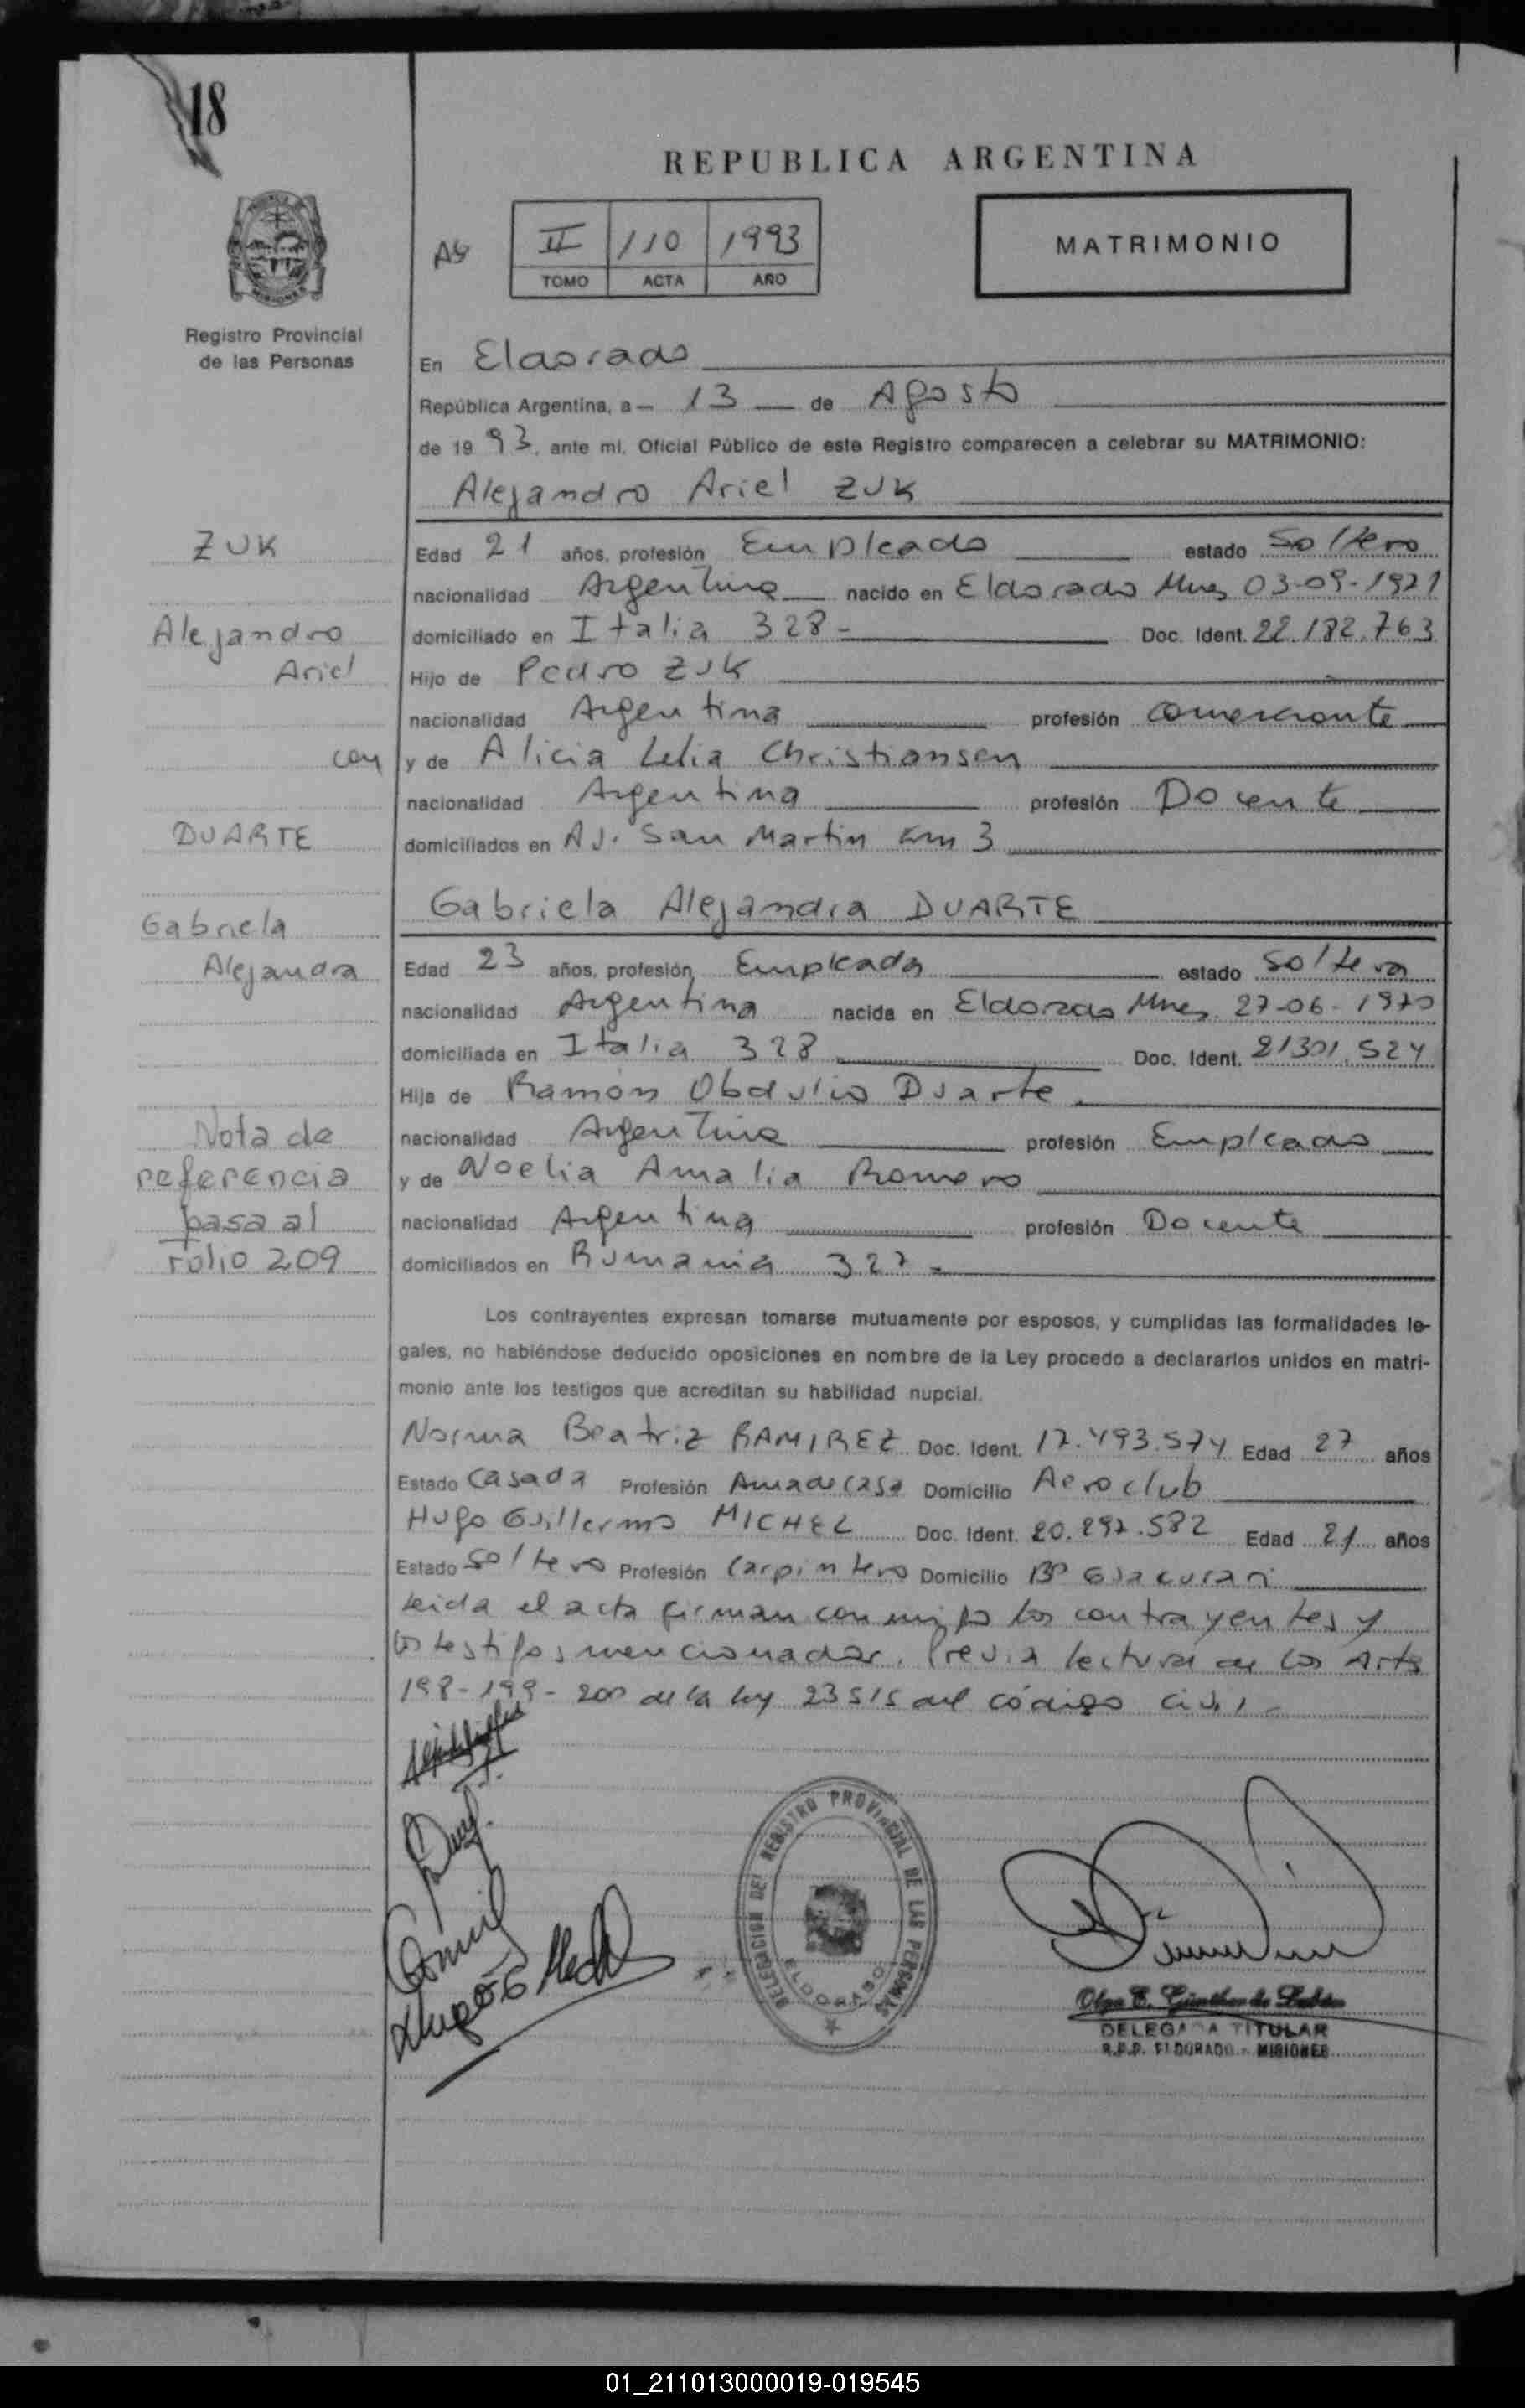 18
REPUBLICA ARGENTINA
II 110 1993
TOMO ACTA AÑO
MATRIMONIO
MISIONES
Registro Provincial
de las Personas
En Eldorado
República Argentina, a 13 de Agosto
de 1993, ante mí, Oficial Público de este Registro comparecen a celebrar su MATRIMONIO:
Alejandro Ariel ZUK
ZUK
Alejandro
Ariel
con
DUARTE
Gabriela
Alejandra
Nota de
referencia
pasa al
Folio 209
Edad 21 años, profesión Empleado estado Soltero
nacionalidad Argentina nacido en Eldorado Mnes 03-09-1971
domiciliado en Italia 328- Doc. Ident. 22.182.763
Hijo de Pedro ZUK
nacionalidad Argentina profesión comerciante
y de Alicia Lelia Christiansen
nacionalidad Argentina profesión Docente
domiciliados en Av. San Martin Km 3
Gabriela Alejandra DUARTE
Edad 23 años, profesión Empleada estado Soltera
nacionalidad Argentina nacida en Eldorado Mnes 27-06-1970
domiciliada en Italia 328 Doc. Ident. 21301.524
Hija de Ramón Obdulio Duarte.
nacionalidad Argentina profesión Empleado
y de Noelia Amalia Romero
nacionalidad Argentina profesión Docente
domiciliados en Rumania 327-
Los contrayentes expresan tomarse mutuamente por esposos, y cumplidas las formalidades le-
gales, no habiéndose deducido oposiciones en nombre de la Ley procedo a declararlos unidos en matri-
monio ante los testigos que acreditan su habilidad nupcial.
Norma Beatriz RAMIREZ Doc. Ident. 17.493.574 Edad 27 años
Estado Casada Profesión Ama de casa Domicilio Aeroclub
Hugo Guillermo MICHEL Doc. Ident. 20.297.582 Edad 21 años
Estado Soltero Profesión Carpintero Domicilio Bº Guacurari
Leida el acta firman conmigo los contrayentes y
los testigos mencionados. Previa lectura de los Arts
198-199-200 de la ley 23515 del código civil-
DELEGACION DEL REGISTRO PROVINCIAL DE LAS PERSONAS
ELDORADO
Hugo G Michel
Olga E.
DELEGADA TITULAR
R.P.P. ELDORADO - MISIONES
01_211013000019-019545